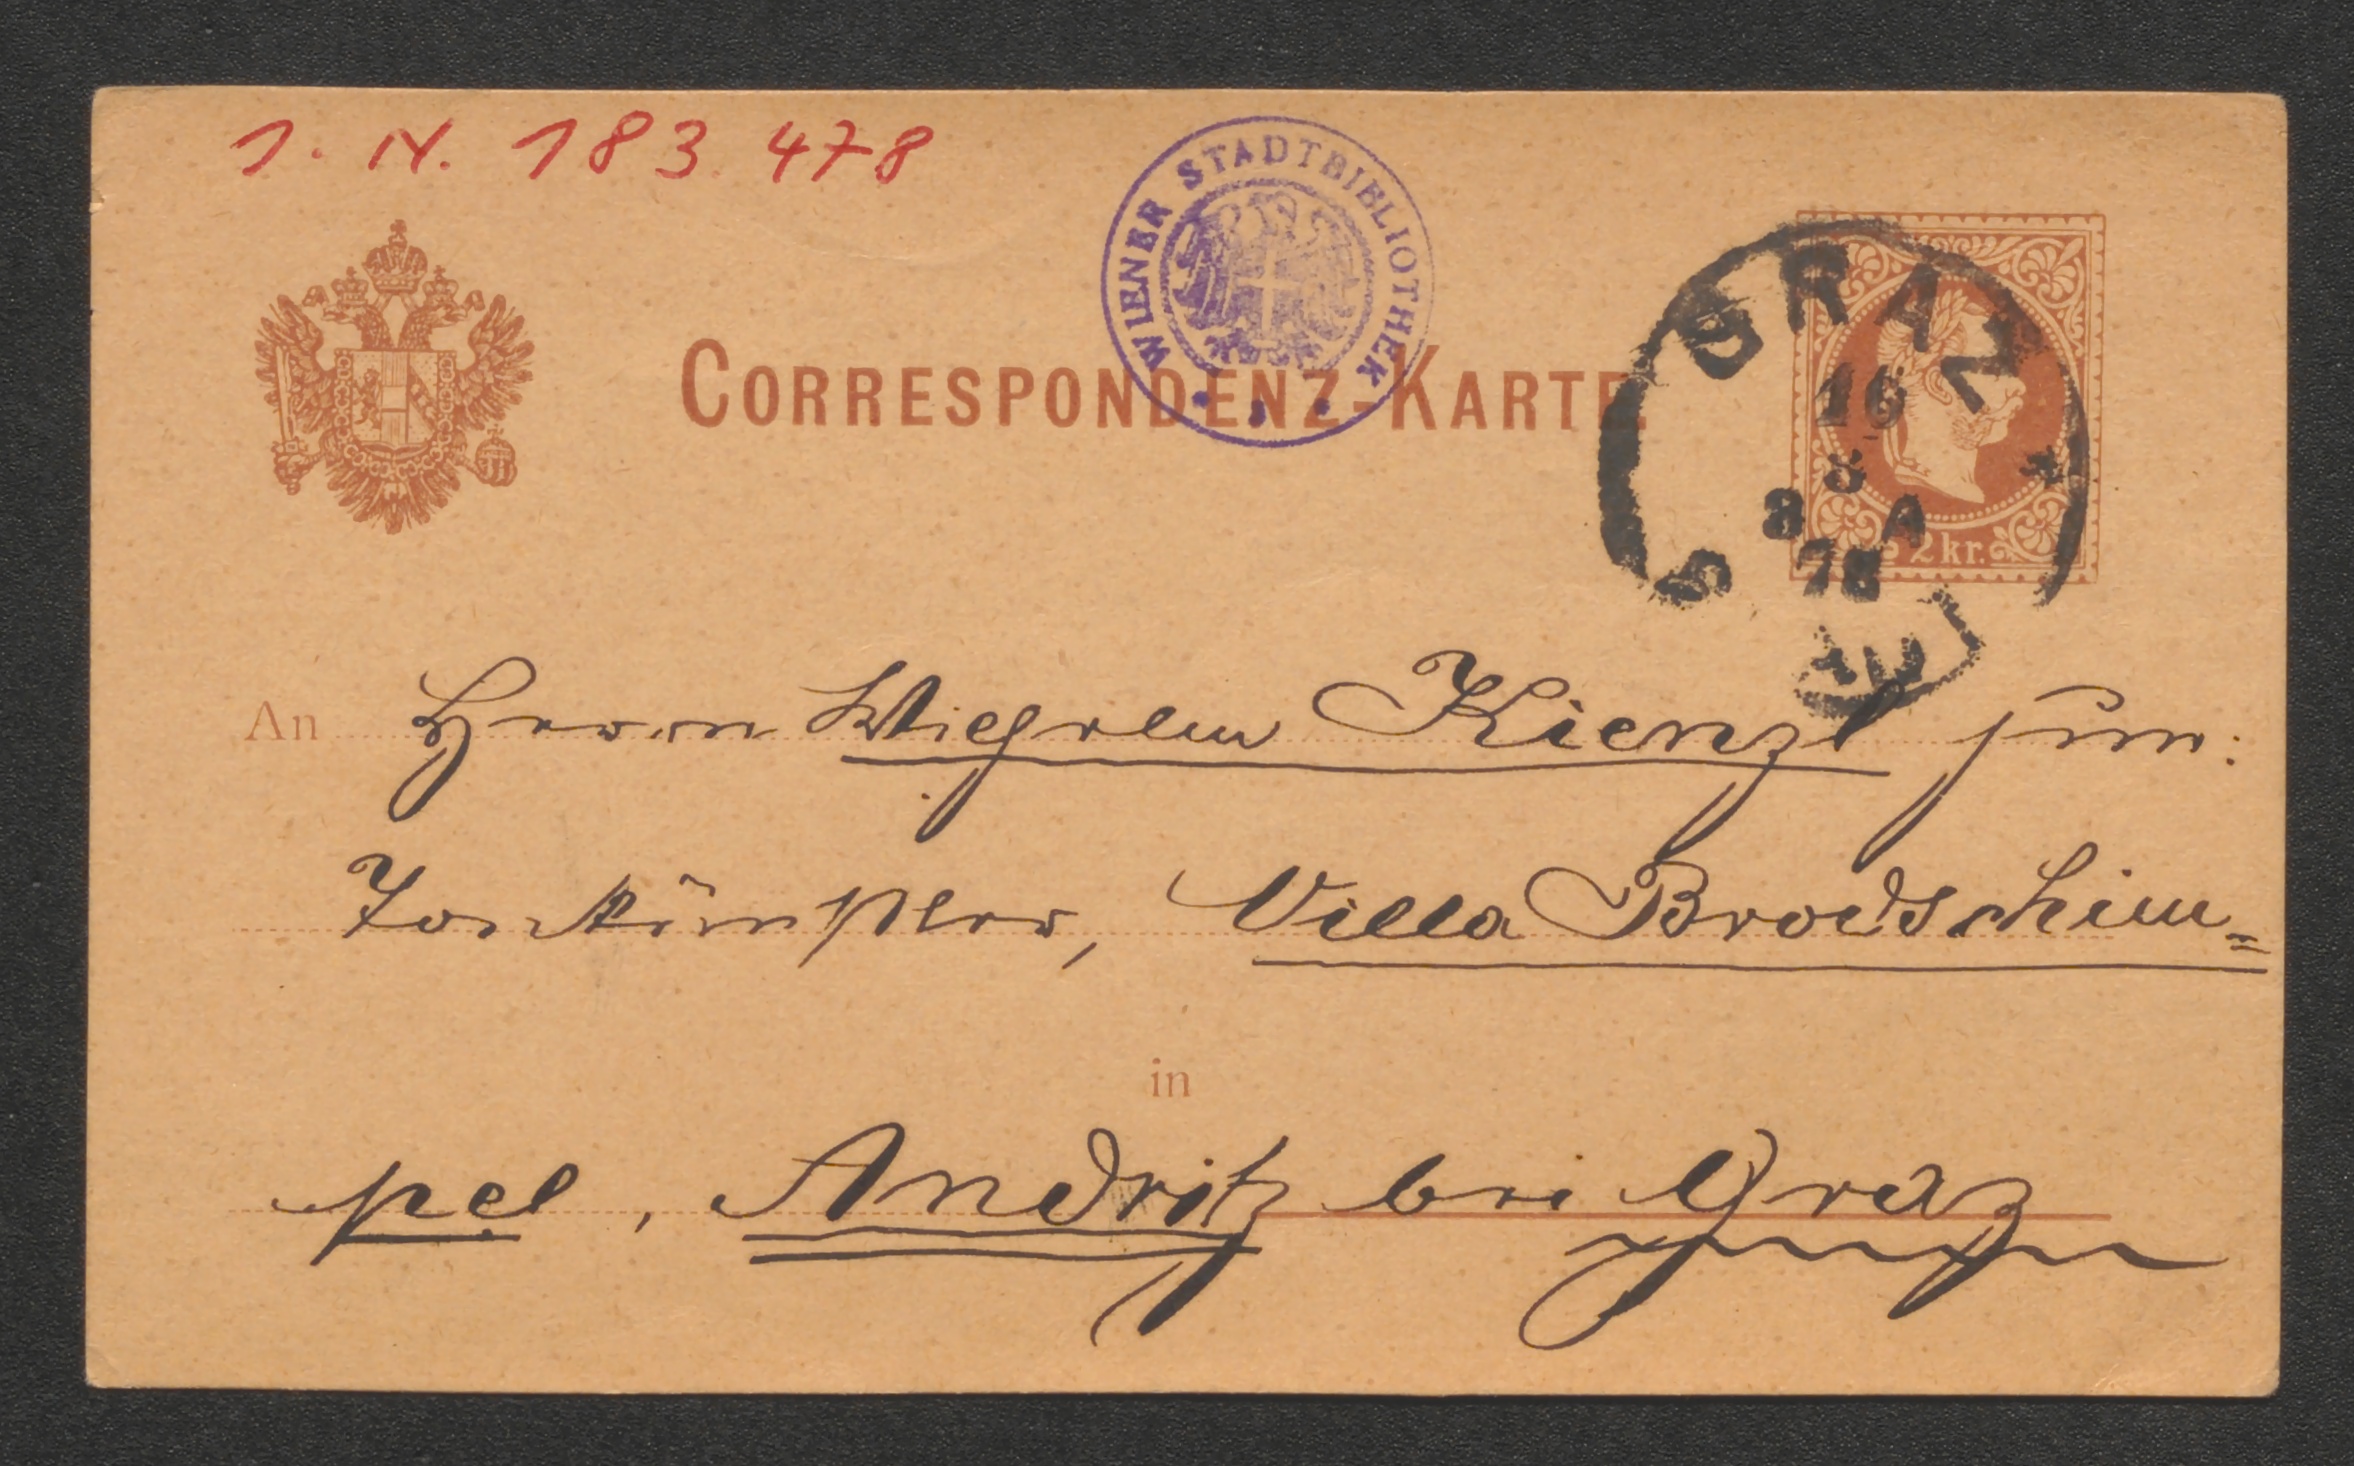 J. N. 183.478
WIENER STADTBIBLIOTHEK
CORRESPONDENZ-KARTE.
GRAZ
16
8
8 A
78
2 kr.
An Herrn Wilhelm Kienzl jun:
Tonkünstler, Villa Brodschim=
in
pel, Andritz bei Graz